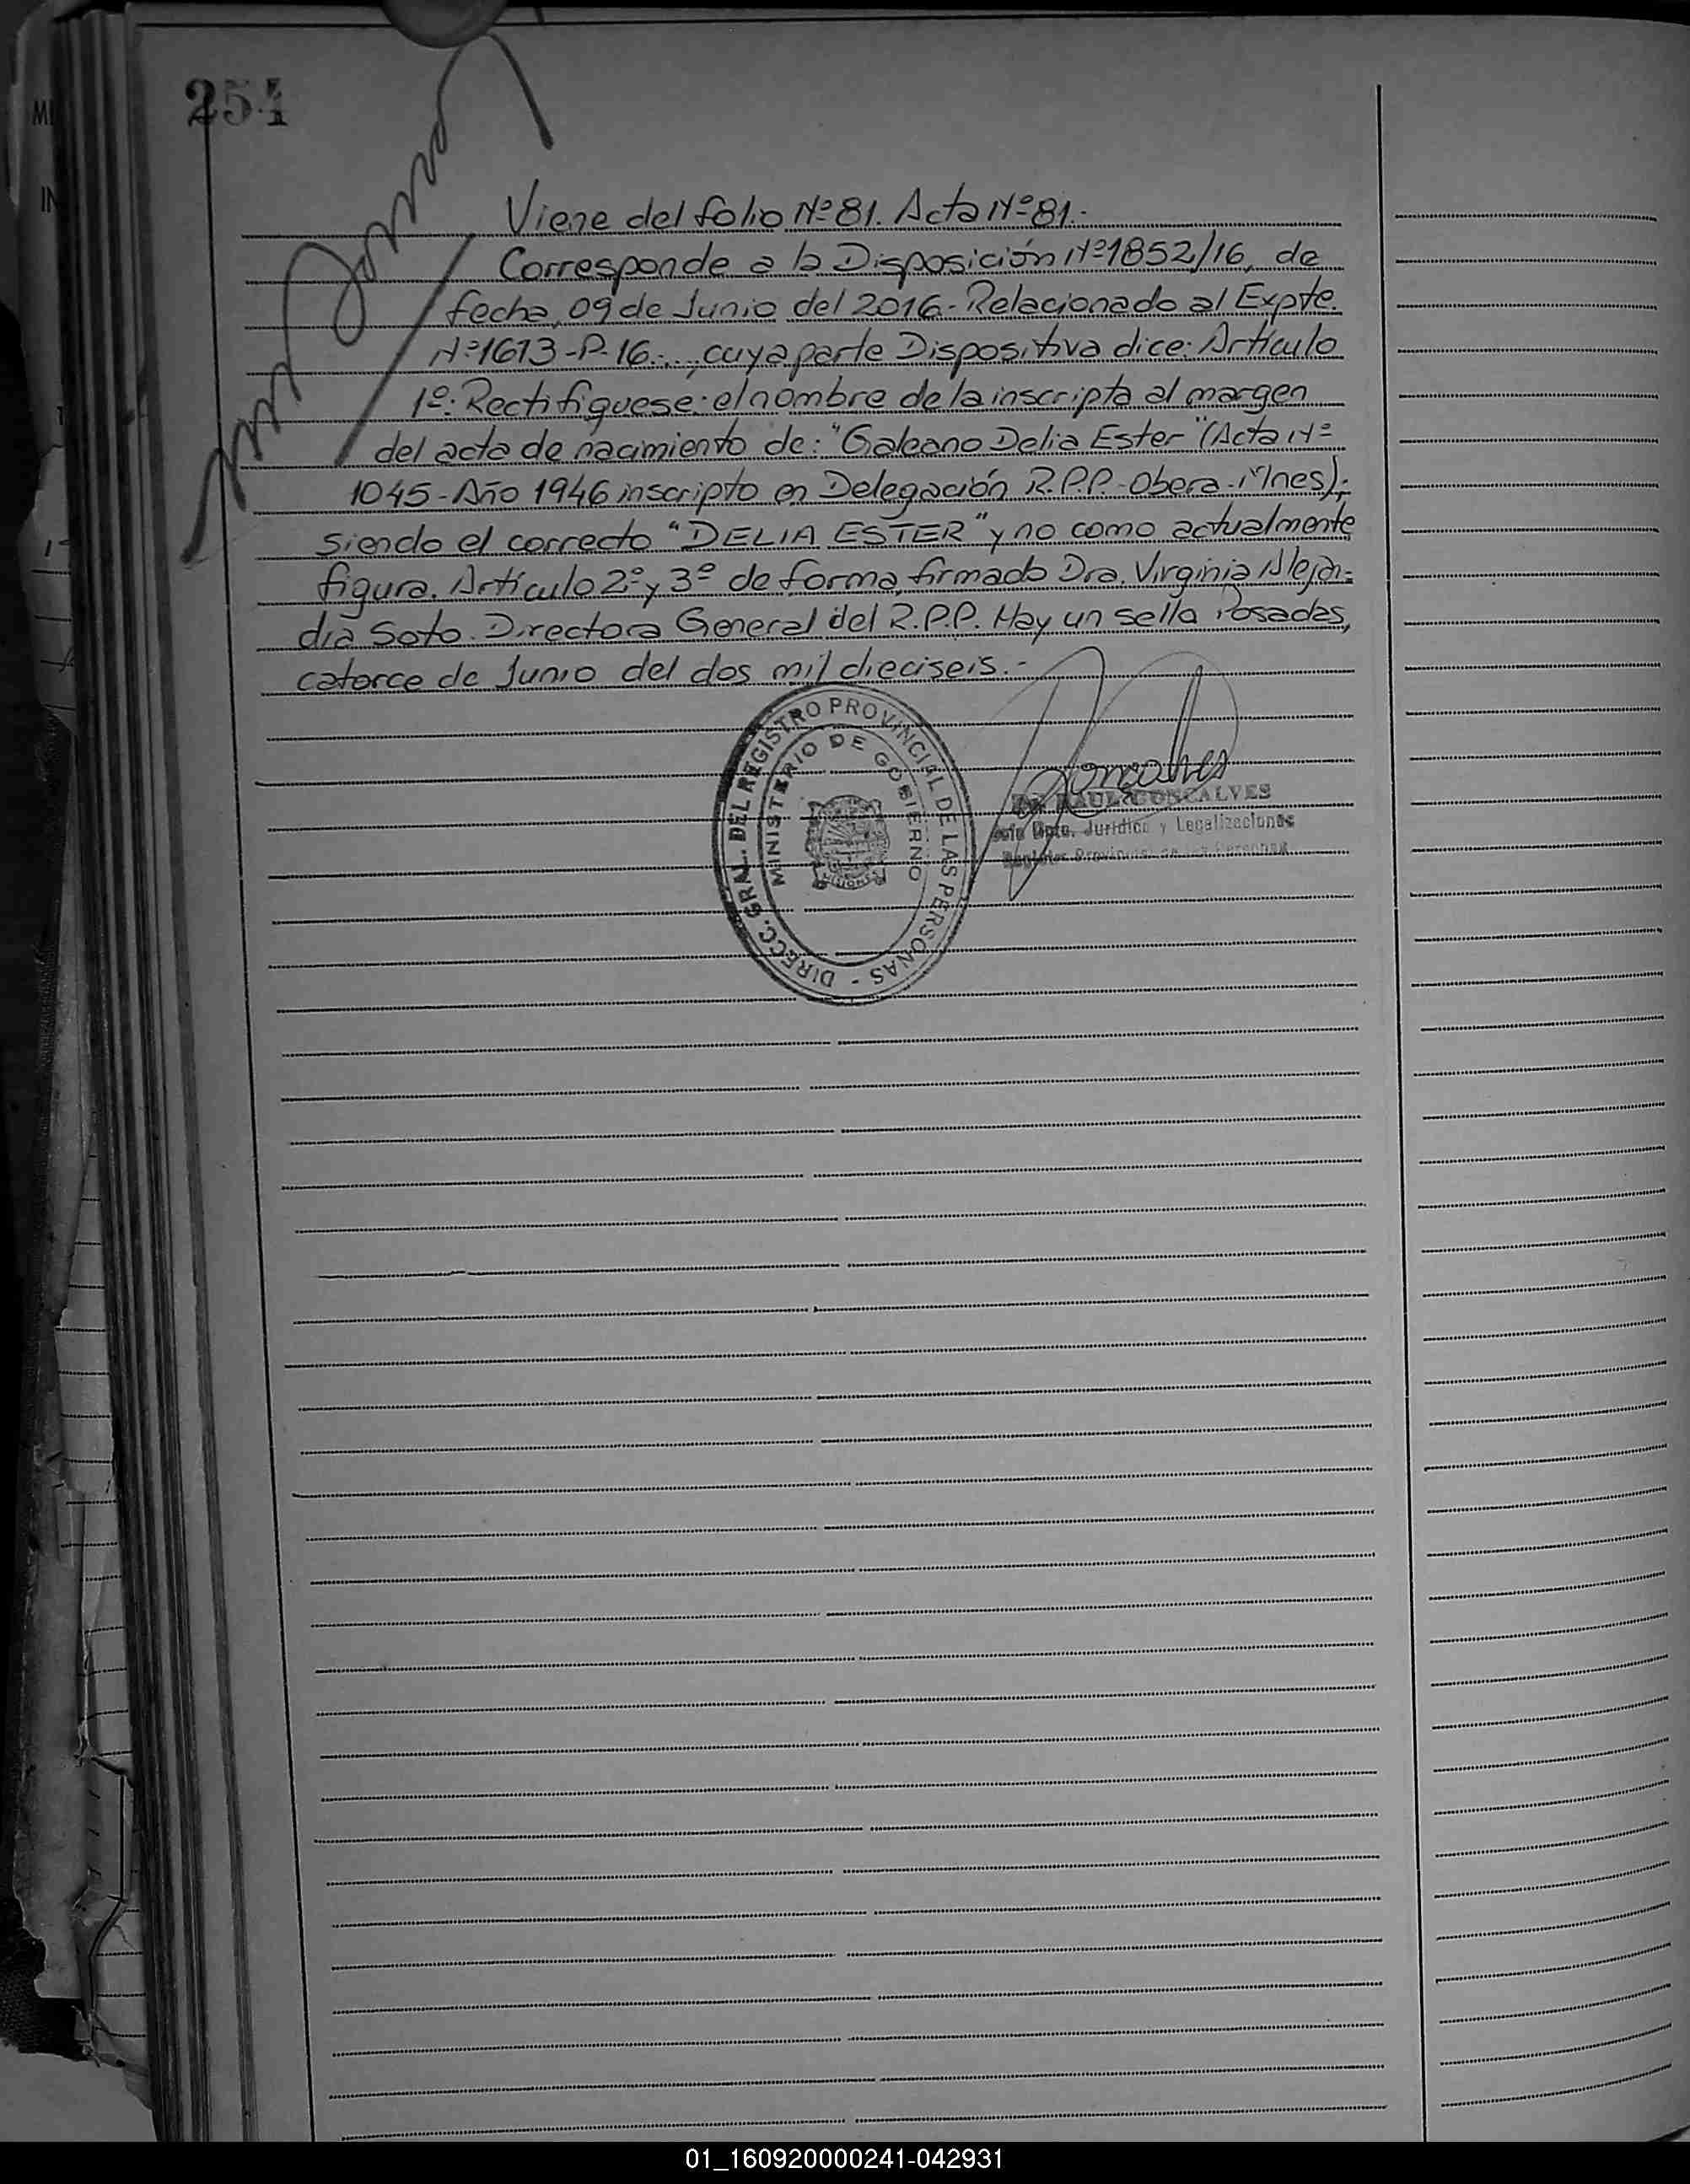 254
Viene del folio Nº 81. Acta Nº 81.-
Corresponde a la Disposición Nº 1852/16, de
fecha, 09 de Junio del 2016.- Relacionado al Expte.
Nº 1613-P-16...., cuya parte Dispositiva dice: Artículo
1º: Rectifiquese: el nombre de la inscripta al margen
del acta de nacimiento de: "Galeano Delia Ester" (Acta Nº
1045 - Año 1946 inscripto en Delegación R.P.P. - Obera - Mnes);
siendo el correcto "DELIA ESTER" y no como actualmente
figura. Artículo 2º y 3º de forma, firmado Dra. Virginia Alejan=
dra Soto. Directora General del R.P.P. Hay un sello Posadas,
catorce de Junio del dos mil dieciseis.-
DIRECC. GRAL. DEL REGISTRO PROVINCIAL DE LAS PERSONAS -
MINISTERIO DE GOBIERNO
MISIONES
Goncalves
RAUL GONCALVES
Jefe Dpto. Jurídico y Legalizaciones
Registro Provincial de las Personas
01_160920000241-042931